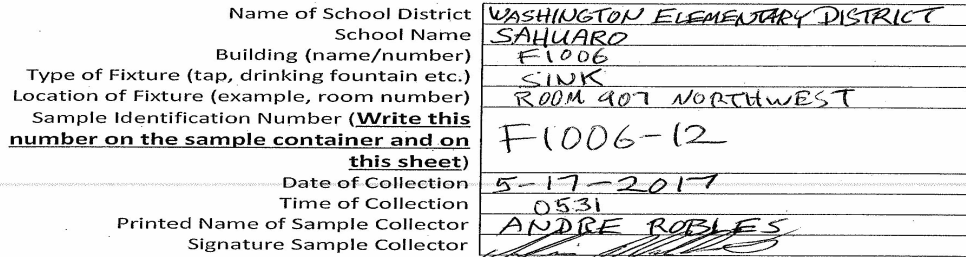 Name of School District WASHINGTON ELEMENTARY DISTRICT
School Name SAHUARO
Building (name/number) F1006
Type of Fixture (tap, drinking fountain etc.) SINK
Location of Fixture (example, room number) ROOM 907 NORTHWEST
Sample Identification Number (Write this
number on the sample container and on F1006-12
this sheet)
Date of Collection 5-17-2017
Time of Collection 0531
Printed Name of Sample Collector ANDRE ROBLES
Signature Sample Collector